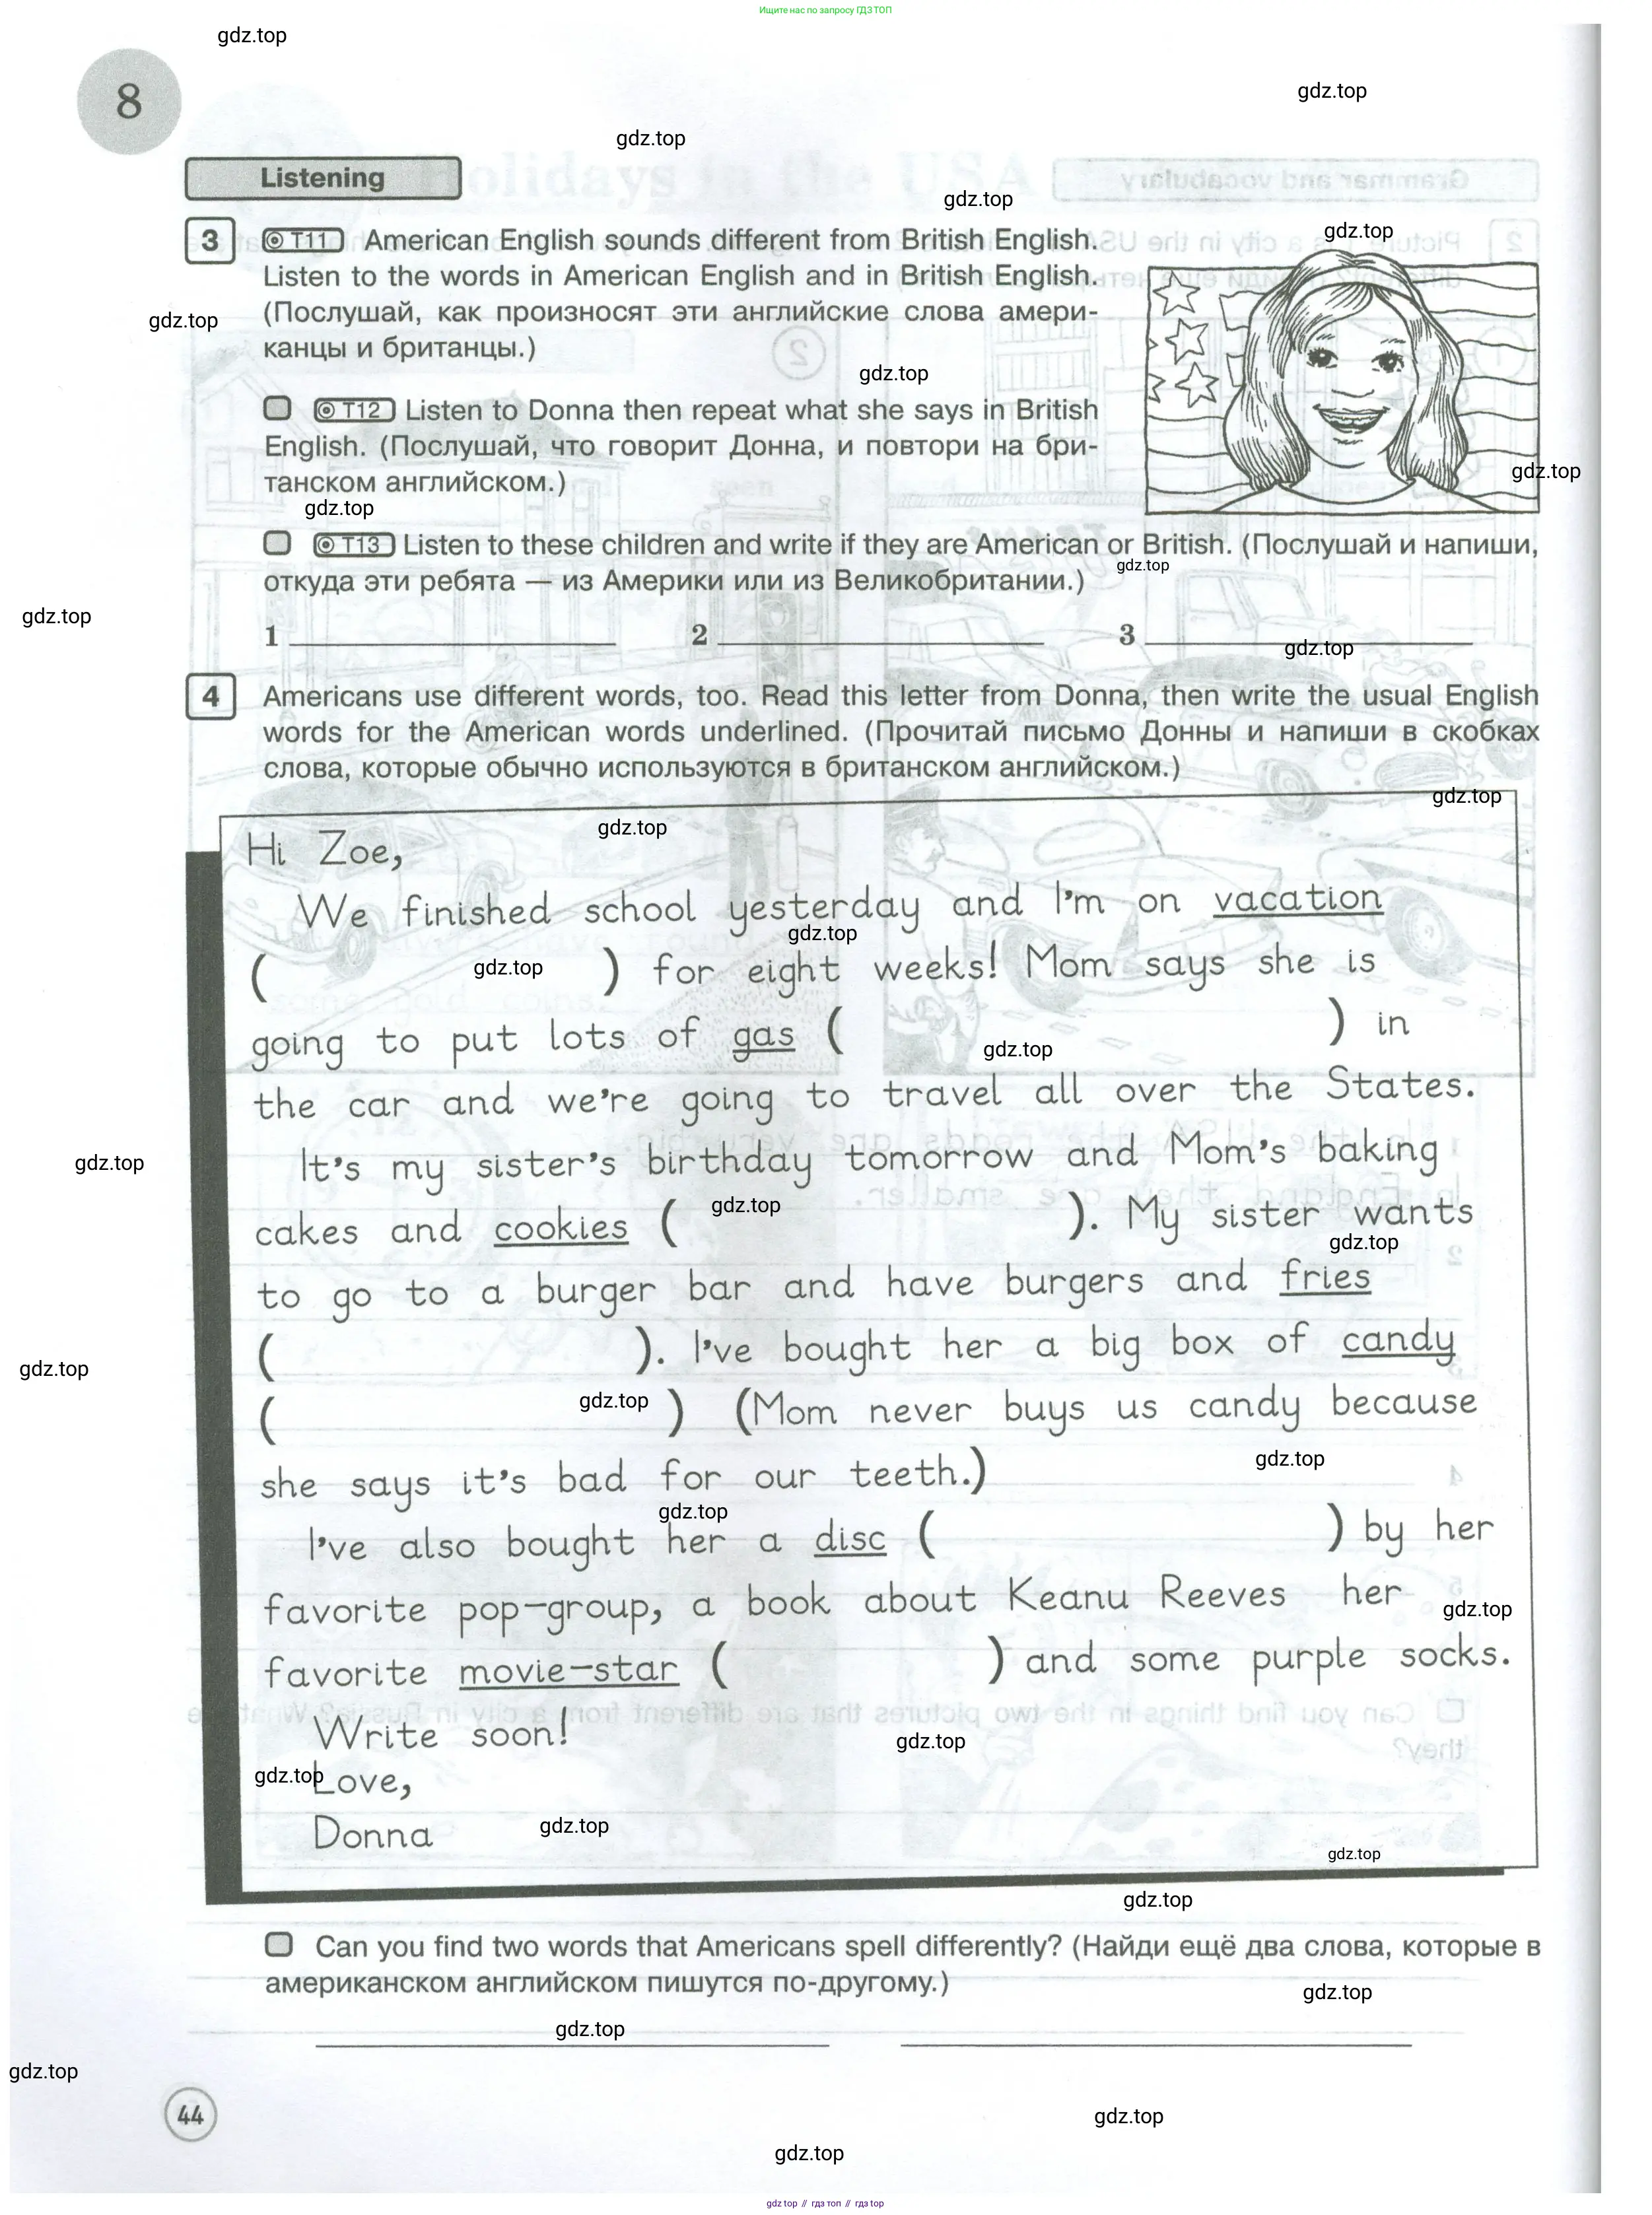 Ищите нас по запросу ГДЗ ТОП
gdz.top
8
gdz.top
gdz.top
Listening
gdz.top
3 T11 American English sounds different from British English.
gdz.top
Listen to the words in American English and in British English.
(Послушай, как произносят эти английские слова амери-
gdz.top
канцы и британцы.)
gdz.top
T12 Listen to Donna then repeat what she says in British
English. (Послушай, что говорит Донна, и повтори на бри-
gdz.top
танском английском.)
gdz.top
T13 Listen to these children and write if they are American or British. (Послушай и напиши,
gdz.top
откуда эти ребята — из Америки или из Великобритании.)
gdz.top
1 2 3
gdz.top
4 Americans use different words, too. Read this letter from Donna, then write the usual English
words for the American words underlined. (Прочитай письмо Донны и напиши в скобках
слова, которые обычно используются в британском английском.)
gdz.top
gdz.top
Hi Zoe,
We finished school yesterday and I'm on vacation
gdz.top
( gdz.top ) for eight weeks! Mom says she is
going to put lots of gas ( ) in
gdz.top
the car and we're going to travel all over the States.
It's my sister's birthday tomorrow and Mom's baking
gdz.top
gdz.top
cakes and cookies ( ). My sister wants
gdz.top
to go to a burger bar and have burgers and fries
( ). I've bought her a big box of candy
gdz.top
( gdz.top ) (Mom never buys us candy because
she says it's bad for our teeth.)
gdz.top
gdz.top
I've also bought her a disc ( ) by her
favorite pop-group, a book about Keanu Reeves her
gdz.top
favorite movie-star ( ) and some purple socks.
Write soon!
gdz.top
gdz.top
Love,
Donna
gdz.top
gdz.top
gdz.top
Can you find two words that Americans spell differently? (Найди ещё два слова, которые в
американском английском пишутся по-другому.)
gdz.top
gdz.top
gdz.top
44
gdz.top
gdz.top
gdz top // гдз топ // гдз top